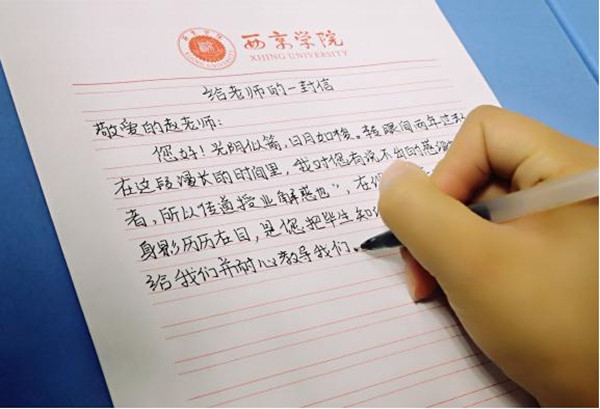 西京学院
XIJING UNIVERSITY
给老师的一封信
敬爱的赵老师：
您好！光阴似箭，日月如梭。转眼间两年
在这段漫长的时间里，我对您有说不出的感
者，所以传道授业解惑也"，在
身影历历在目，是您把毕生知
给我们并耐心教导我们。